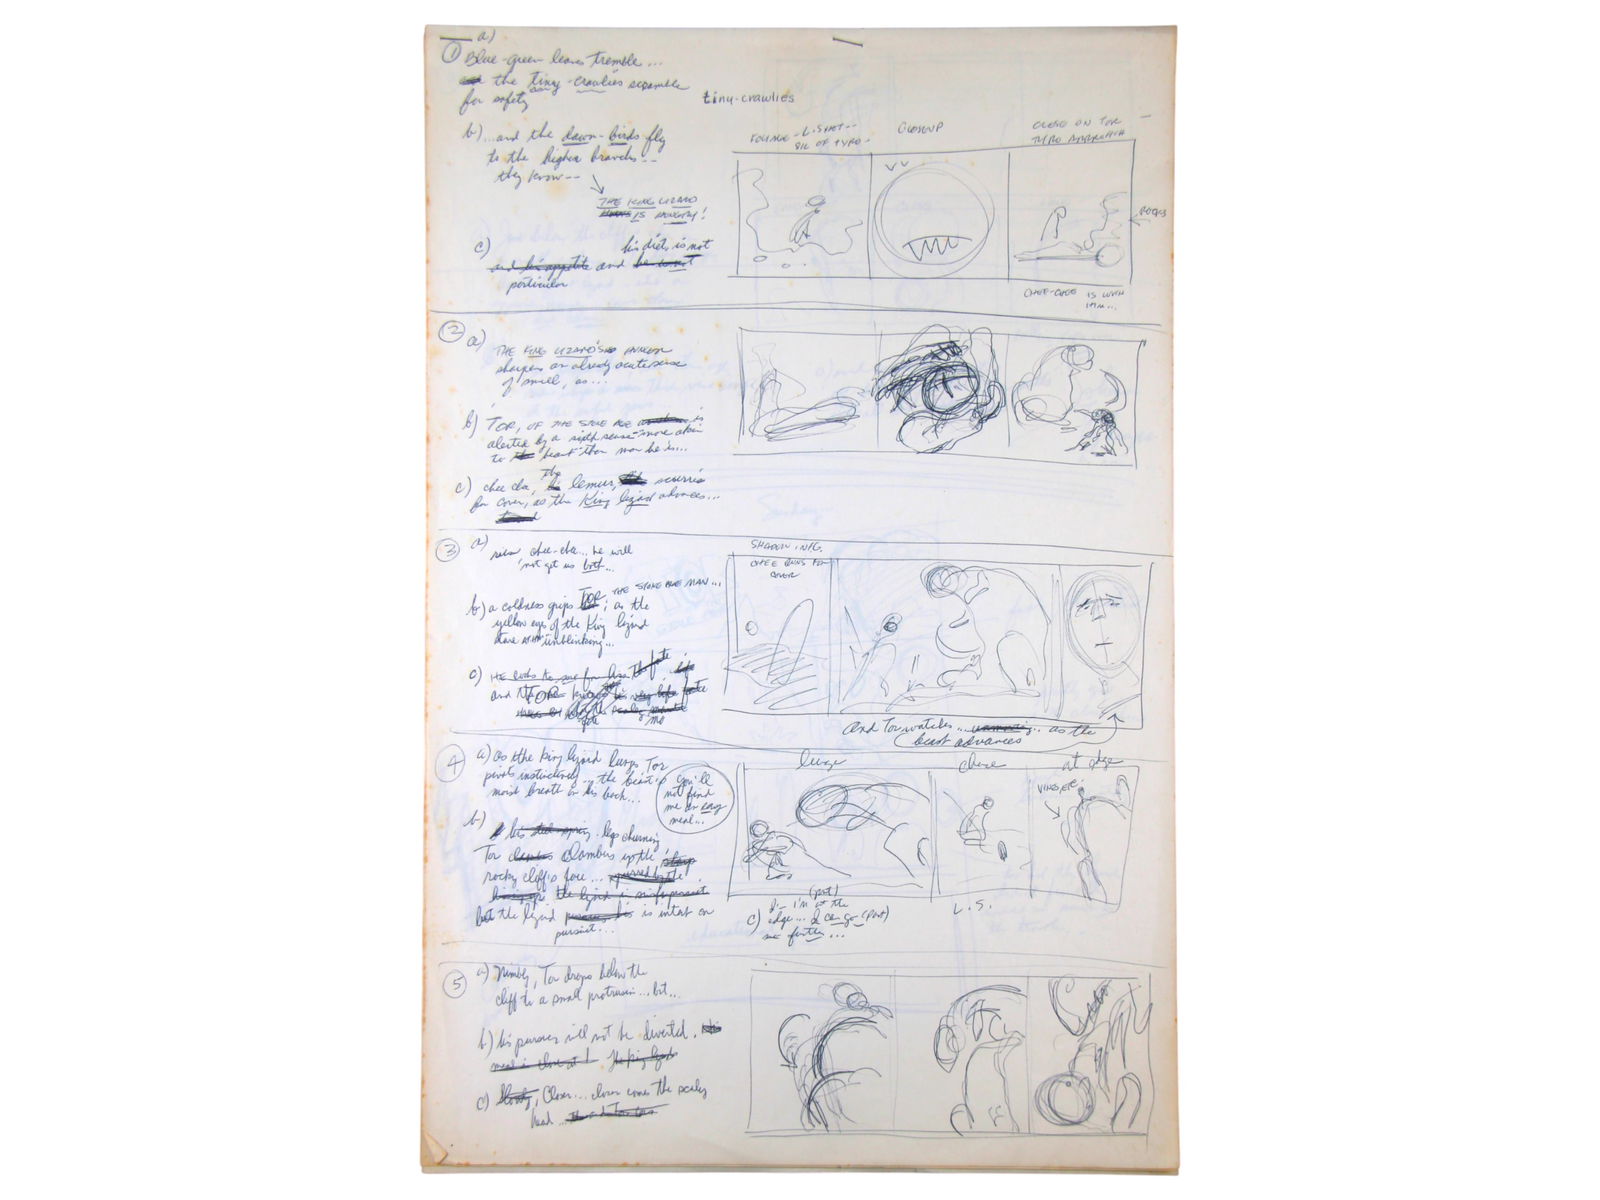 ① a)
Blue-green leaves tremble...
the tiny-crawlies scramble
for safety
tiny-crawlies
b) ...and the dawn-birds fly
to the higher branches--
they know--
THE KING LIZARD
IS HUNGRY!
c) his diet is not
and his appetite and he is not
particular
FOLIAGE - L. SHOT--
SIL OF TYRO-
CLOSEUP
CLOSE ON TOR
TYRO APPROACH
ROCKS
CHEE-CHEE IS WITH
HIM...
② a)
THE KING LIZARD'S HUNGER
sharpens an already acute sense
of smell, as...
b) TOR, OF THE STONE AGE is
alerted by a sixth sense more akin
to beast than man he is...
c) chee chee, the lemur, scurries
for cover, as the King lizard advances...
③ a)
run chee-chee... he will
not get us both...
b) a coldness grips TOR THE STONE AGE MAN...; as the
yellow eyes of the King lizard
stare at him unblinking...
c) HE looks to
and
SHADOW INFG.
CHEE RUNS FOR
COVER
And Tor watches... as the
beast advances
④ a) as the king lizard lunges Tor
pivots instinctively... the beast's
moist breath on his back...
you'll
not find
me an easy
meal...
b) legs churning
Tor clambers up the
rocky cliff's face...
but the lizard is intent on
pursuit...
lunge
chase
at edge
c) I'm at the
edge... I can go (pant)
no further...
(pant)
L.S.
⑤ a) Nimbly, Tor drops below the
cliff to a small protrusion... but...
b) his pursuer will not be diverted.
meal is close at The king lizard
c) Slowly, Closer... closer comes the scaly
head... and Tor